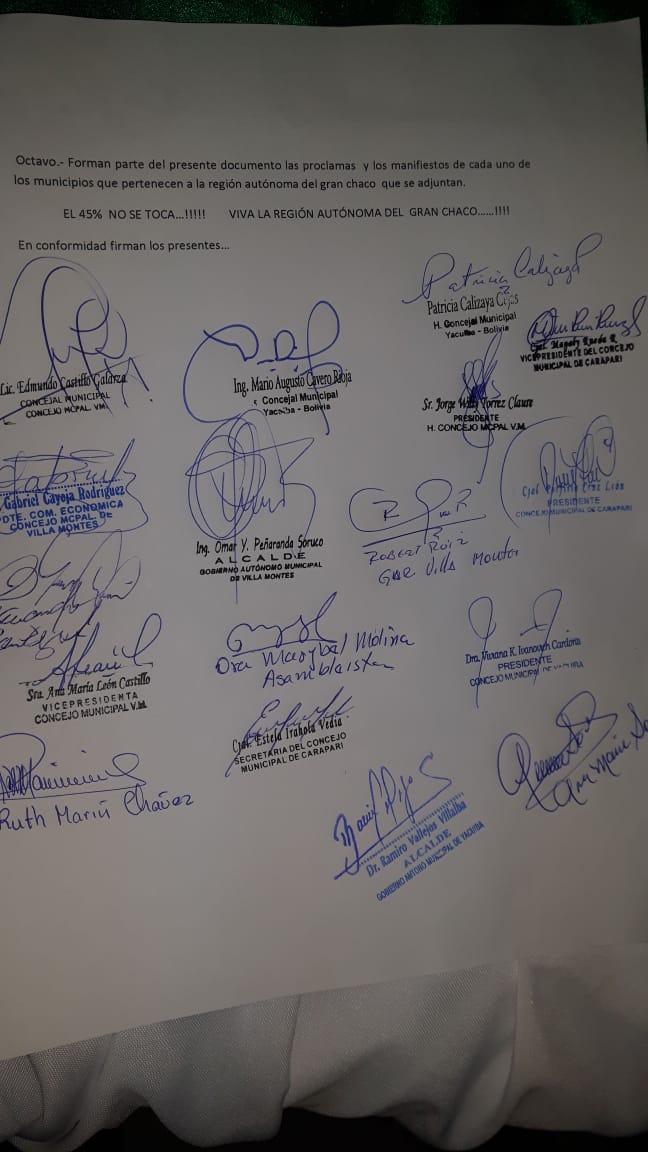 Octavo.- Forman parte del presente documento las proclamas y los manifiestos de cada uno de
los municipios que pertenecen a la región autónoma del gran chaco que se adjuntan.
EL 45% NO SE TOCA...!!!!! VIVA LA REGIÓN AUTÓNOMA DEL GRAN CHACO......!!!!
En conformidad firman los presentes...
Patricia Calizaya
Patricia Calizaya
H. Concejal Municipal
Yacuiba - Bolivia
Cjal. Magaly Rueda R.
VICEPRESIDENTE DEL CONCEJO
MUNICIPAL DE CARAPARI
Lic. Edmundo Castillo Galarza
CONCEJAL MUNICIPAL
CONCEJO MCPAL. VM.
Ing. Mario Augusto Cavero Rioja
Concejal Municipal
Yacuiba - Bolivia
Sr. Jorge Willy Torrez Claure
PRESIDENTE
H. CONCEJO MCPAL V.M.
Gabriel Gayoja Rodriguez
DTE. COM. ECONOMICA
CONCEJO MCPAL. DE
VILLA MONTES
Ing. Omar Y. Peñaranda Soruco
ALCALDE
GOBIERNO AUTÓNOMO MUNICIPAL
DE VILLA MONTES
Robert Ruiz
Villa Montes
Cjal
PRESIDENTE
CONCEJO MUNICIPAL DE CARAPARI
Sra. Ana María León Castillo
VICEPRESIDENTA
CONCEJO MUNICIPAL V.M.
Dra Marybal Molina
Asambleista
Dra. Viviana K. Ivanovich Cardona
PRESIDENTE
CONCEJO MUNICIPAL DE YACUIBA
Cjal. Estela Irahola Vedia
SECRETARIA DEL CONCEJO
MUNICIPAL DE CARAPARI
Ruth Marin Chávez
Dr. Ramiro Vallejos Villalba
ALCALDE
GOBIERNO MUNICIPAL DE YACUIBA